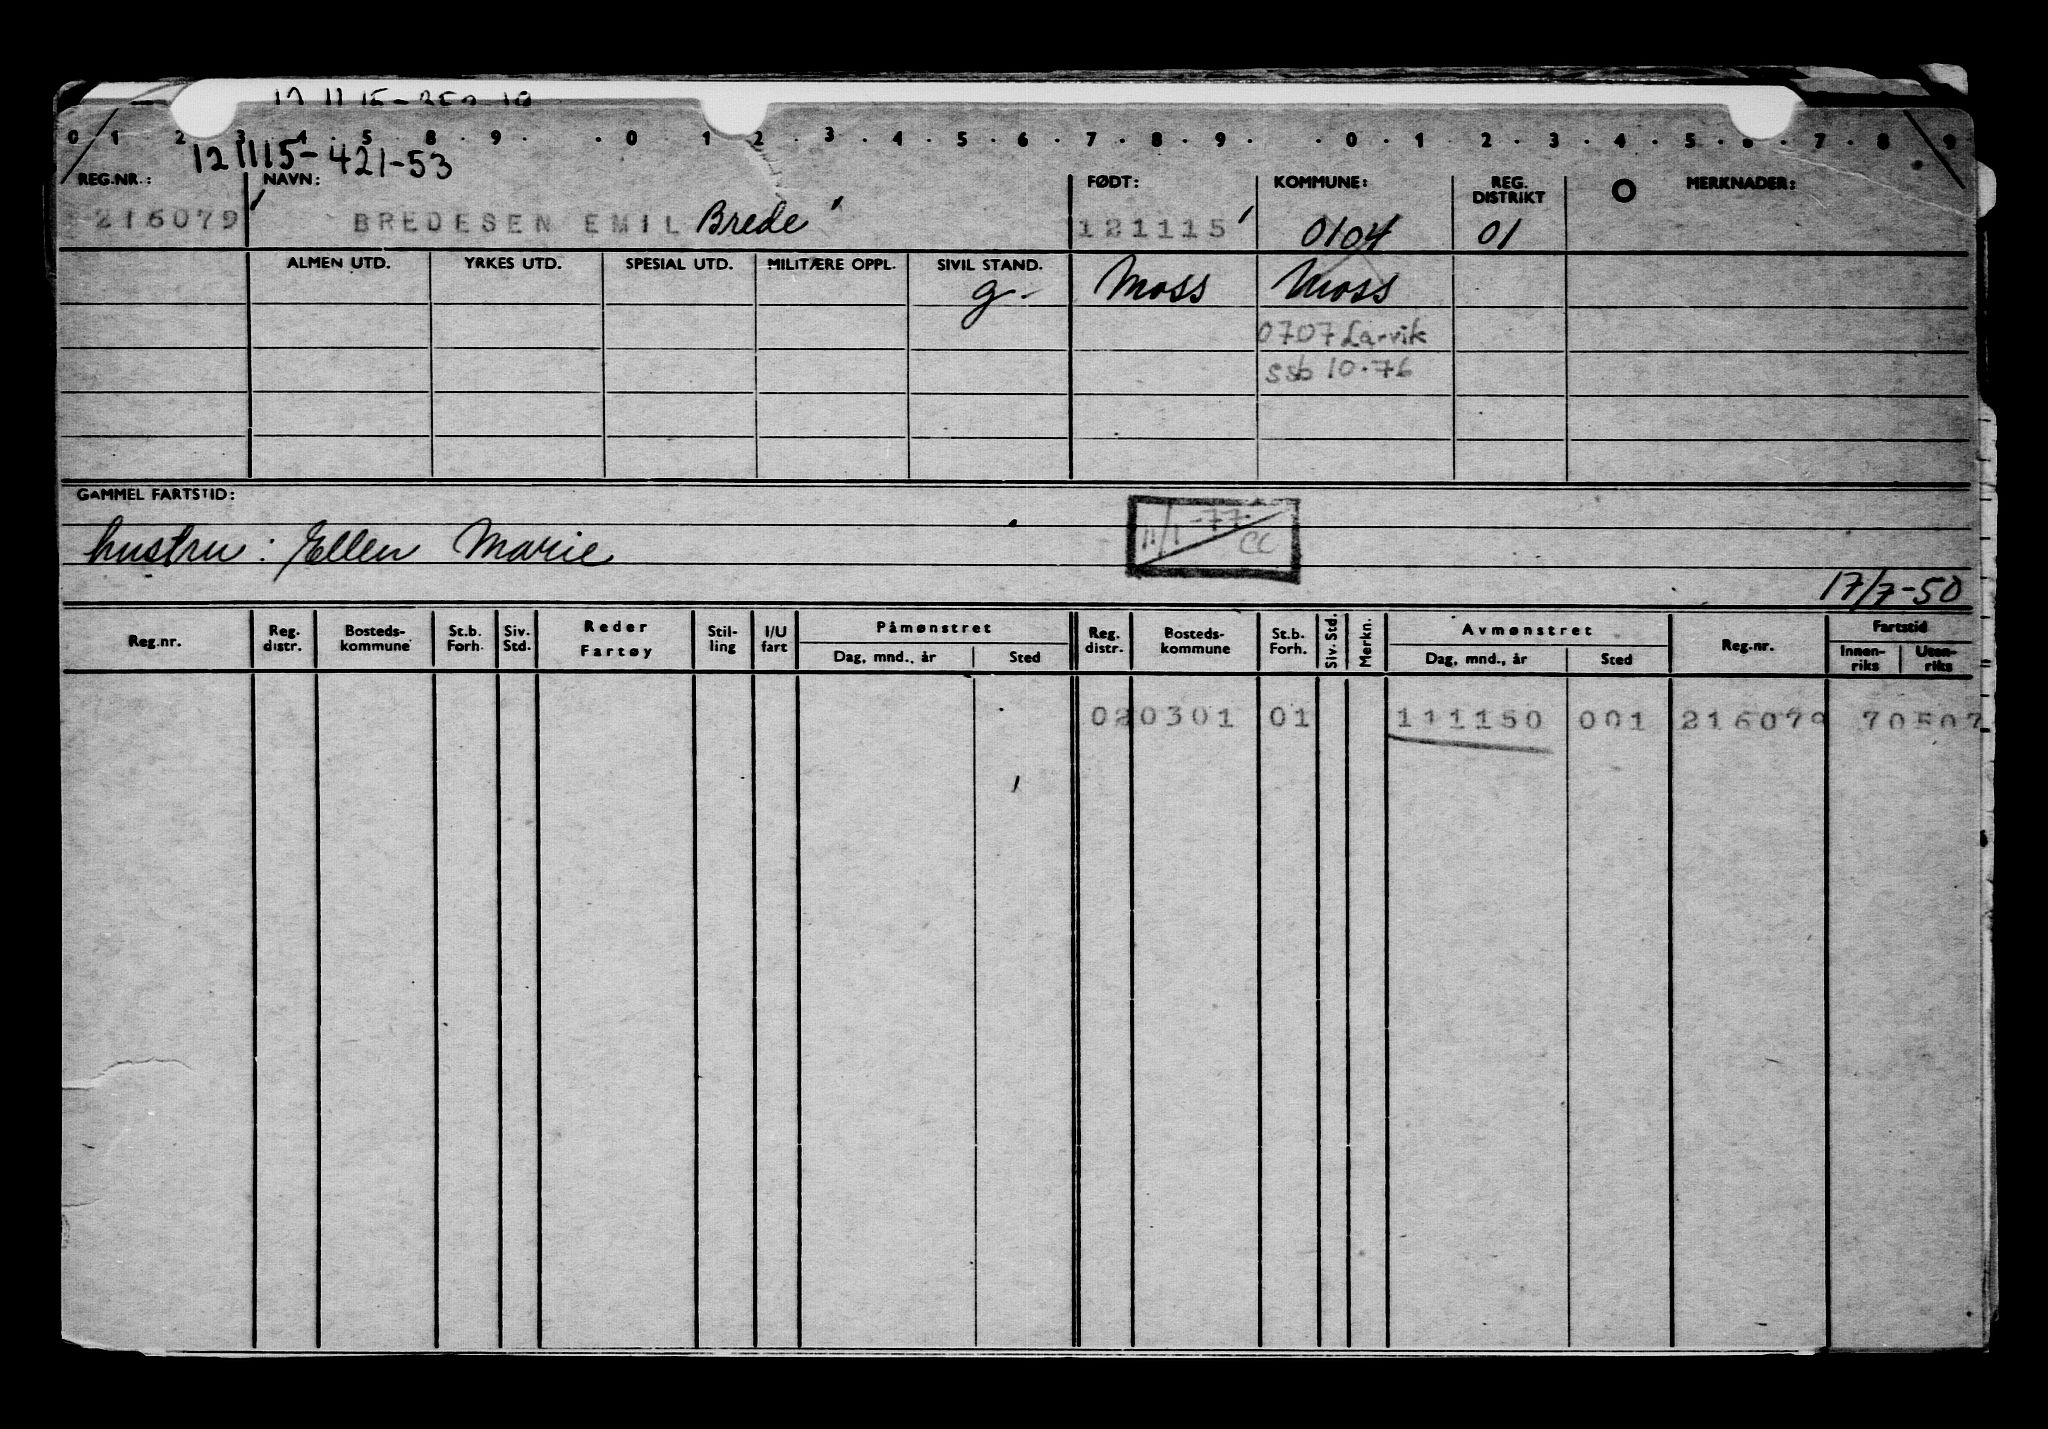 0 1 2 3 4 5 8 9 0 1 2 3 4 5 6 7 8 9 0 1 2 3 4 5 6 7 8 9
121115-421-53
REG.NR.: NAVN: FØDT: KOMMUNE: REG. DISTRIKT MERKNADER:
216079 BREDESEN EMIL Brede 121115 0104 01
ALMEN UTD. YRKES UTD. SPESIAL UTD. MILITÆRE OPPL. SIVIL STAND.
g- Moss Moss
0707 Larvik
ssb 10.76
GAMMEL FARTSTID:
11/1 -77- CC
hustru: Ellen Marie
17/7-50
Reg.nr. Reg. distr. Bosteds-kommune St.b. Forh. Siv. Std. Reder Fartøy Stil-ling I/U fart Påmønstret Dag, mnd., år Sted Reg. distr. Bosteds-kommune St.b. Forh. Siv. Std. Merkn. Avmønstret Dag, mnd., år Sted Reg.nr. Fartstid Innen-riks Uten-riks
020301 01 111150 001 216079 70507